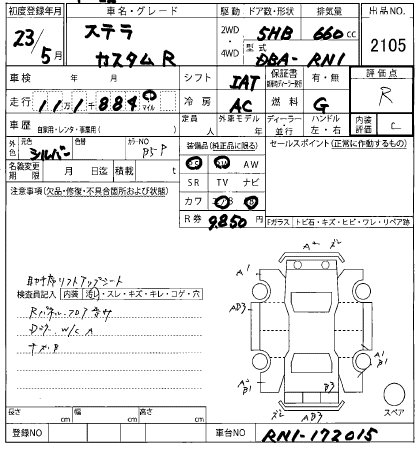 初度登録年月 車名・グレード 駆動 ドア数・形状 排気量 出品NO.
23/5月 ステラ カスタムR 2WD・4WD 5HB 660cc 2105
型式 DBA-RN1
車検 年 月 シフト IAT 保証書 有・無 評価点 R
走行 11万1千884 マイル 冷房 AC 燃料 G
車歴 自家用・レンタ・事業用( ) 定員 人 外車モデル 年 ディーラー・並行 ハンドル 左・右 内装評価 C
外色 元色 シルバー 色替 カラーNO 装備品(純正品に限る) セールスポイント(正常に作動するもの)
名義変更期限 月 日迄 積載 t AW
SR TV ナビ
注意事項(欠品・修復・不具合箇所および状態) カワ
R券 9,850 Fガラス トビ石・キズ・ヒビ・ワレ・リペア跡
助手席リフトアップシート
検査員記入 内装 汚し・スレ・キズ・キレ・コゲ・穴
W/C A
A2
A1
AD3
A1
B1
B3
AD3
スペア
長さ cm 幅 cm 高さ cm
登録NO 車台NO RN1-172015